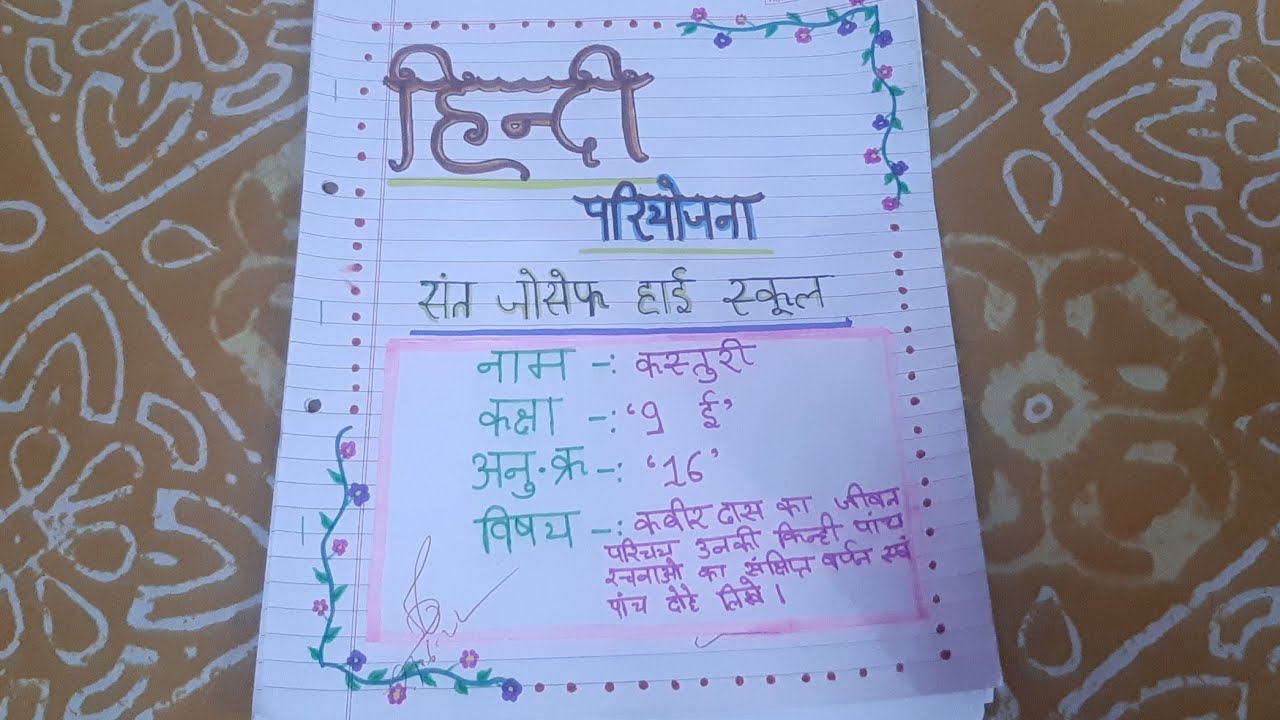 हिन्दी
परियोजना
संत जोसेफ हाई स्कूल
नाम -: कस्तुरी
कक्षा -: '9 ई'
अनु.क्र -: '16'
विषय -: कबीर दास का जीवन
परिचय उनकी किन्ही पांच
रचनाओ का संक्षिप्त वर्णन एवं
पांच दोहे लिखे।